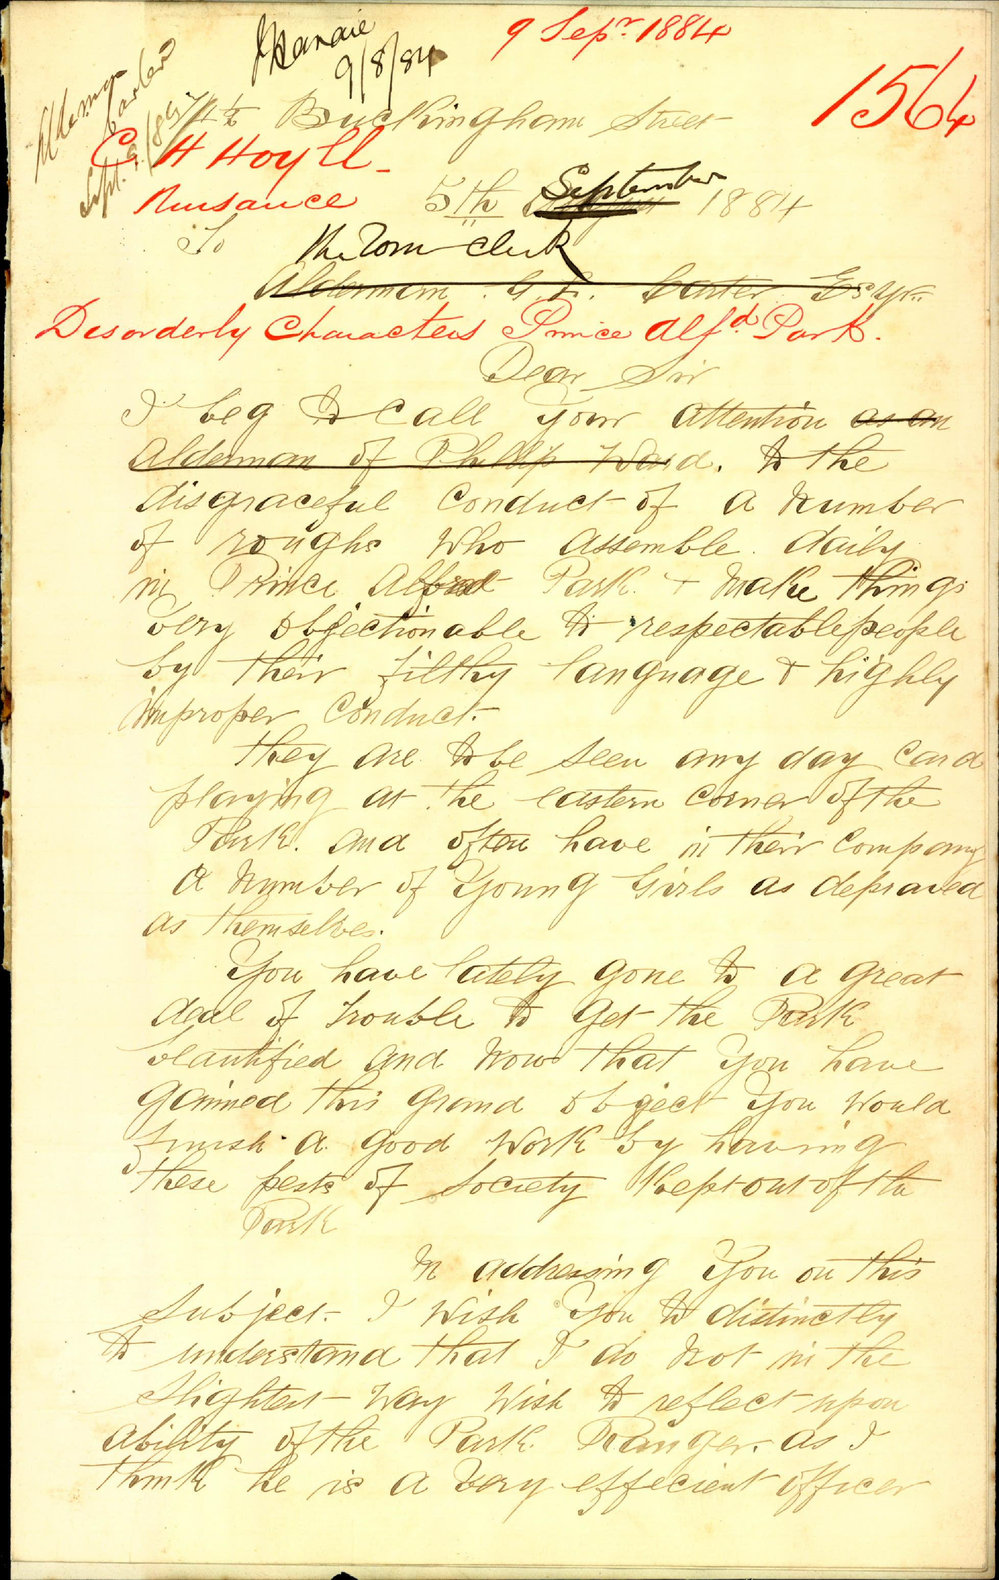 9 Sepr 1884
9/8/84
1564
Alderman
Carter
Sept. 9/84
Buckingham Street
C. H Hoyll
Nuisance
5th September 1884
To
The Town Clerk
Alderman G. L. Carter Esqr.
Desorderly Characters Prince Alfd Park.
Dear Sir
I beg to call Your attention as an
Alderman of Phillip Ward. to the
disgraceful Conduct of a Number
of roughs who assemble daily
in Prince Alfred Park. + Make things
very objectionable to respectable people
by their filthy language & highly
improper Conduct.
They are to be seen any day Card
playing at the eastern corner of the
Park. and often have in their Company
a Number of Young Girls as depraved
as themselves.
You have lately gone to a great
deal of trouble to get the Park
beautified and Now that You have
gained this grand object You would
finish a good Work by having
these pests of Society Kept out of the
Park
In addressing You on this
Subject. I wish You to distinctly
to understand that I do Not in the
slightest Way Wish to reflect upon
ability of the Park Ranger. as I
think he is a very effecient officer